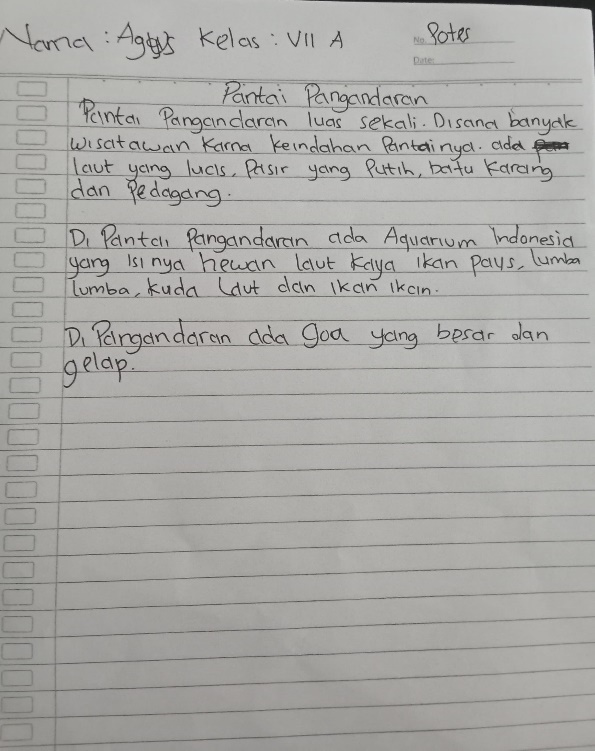 Nama : Agus Kelas : VII A
No. Potes
Date:
Pantai Pangandaran
Pantai Pangandaran luas sekali. Disana banyak
wisatawan karna keindahan Pantainya. ada
laut yang luas, Pasir yang Putih, batu Karang
dan Pedagang.
Di Pantai Pangandaran ada Aquarium Indonesia
yang isinya hewan laut kaya ikan pays, lumba
lumba, kuda laut dan ikan ikan.
Di Pangandaran ada goa yang besar dan
gelap.